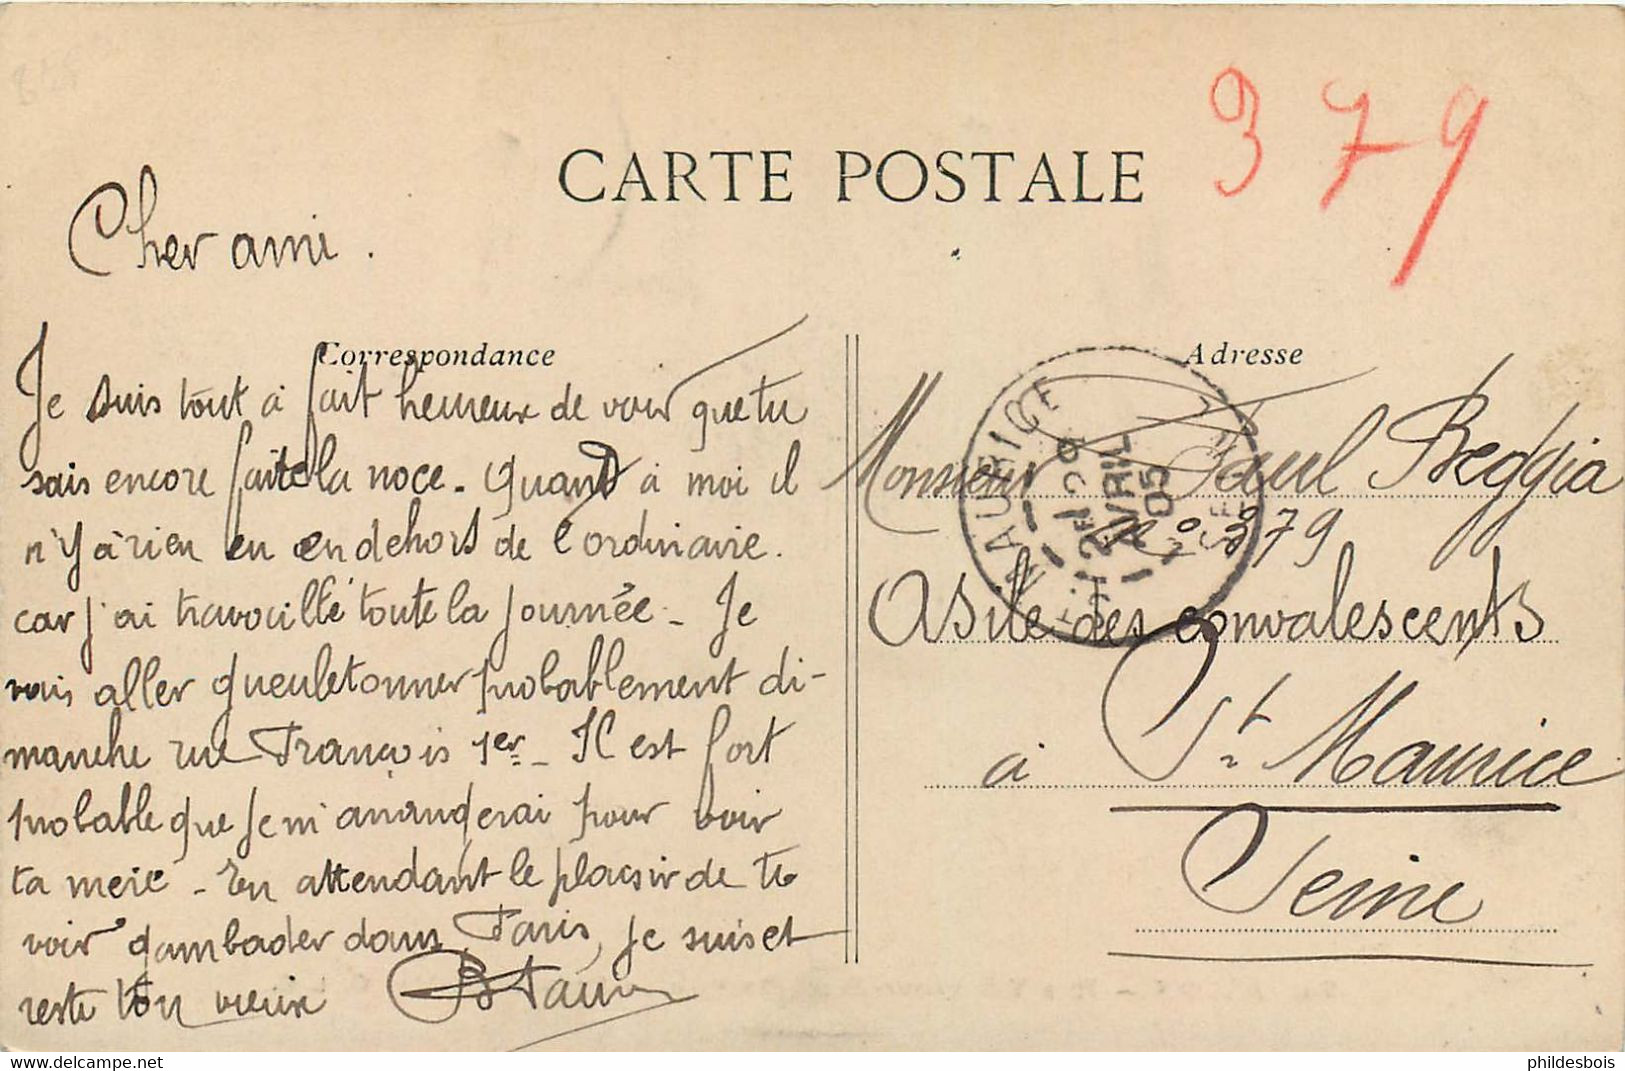 CARTE POSTALE
379
Cher ami.
Correspondance
Je suis tout à fait heureux de voir que tu
sais encore faite la noce. Quand à moi il
n'y a rien en en dehors de l'ordinaire.
car j'ai travaillé toute la journée. Je
vais aller gueuletonner probablement di-
manche rue François 1er. Il est fort
probable que je m'arrangerai pour voir
ta mère. En attendant le plaisir de te
voir gambader dans Paris, je suis et
reste ton vieux
Adresse
Monsieur Paul Beggia
No 379
Asile des convalescents
à St. Maurice
Seine
MAURICE
12 E
29
AVRIL
05
delcampe.net
phildesbois